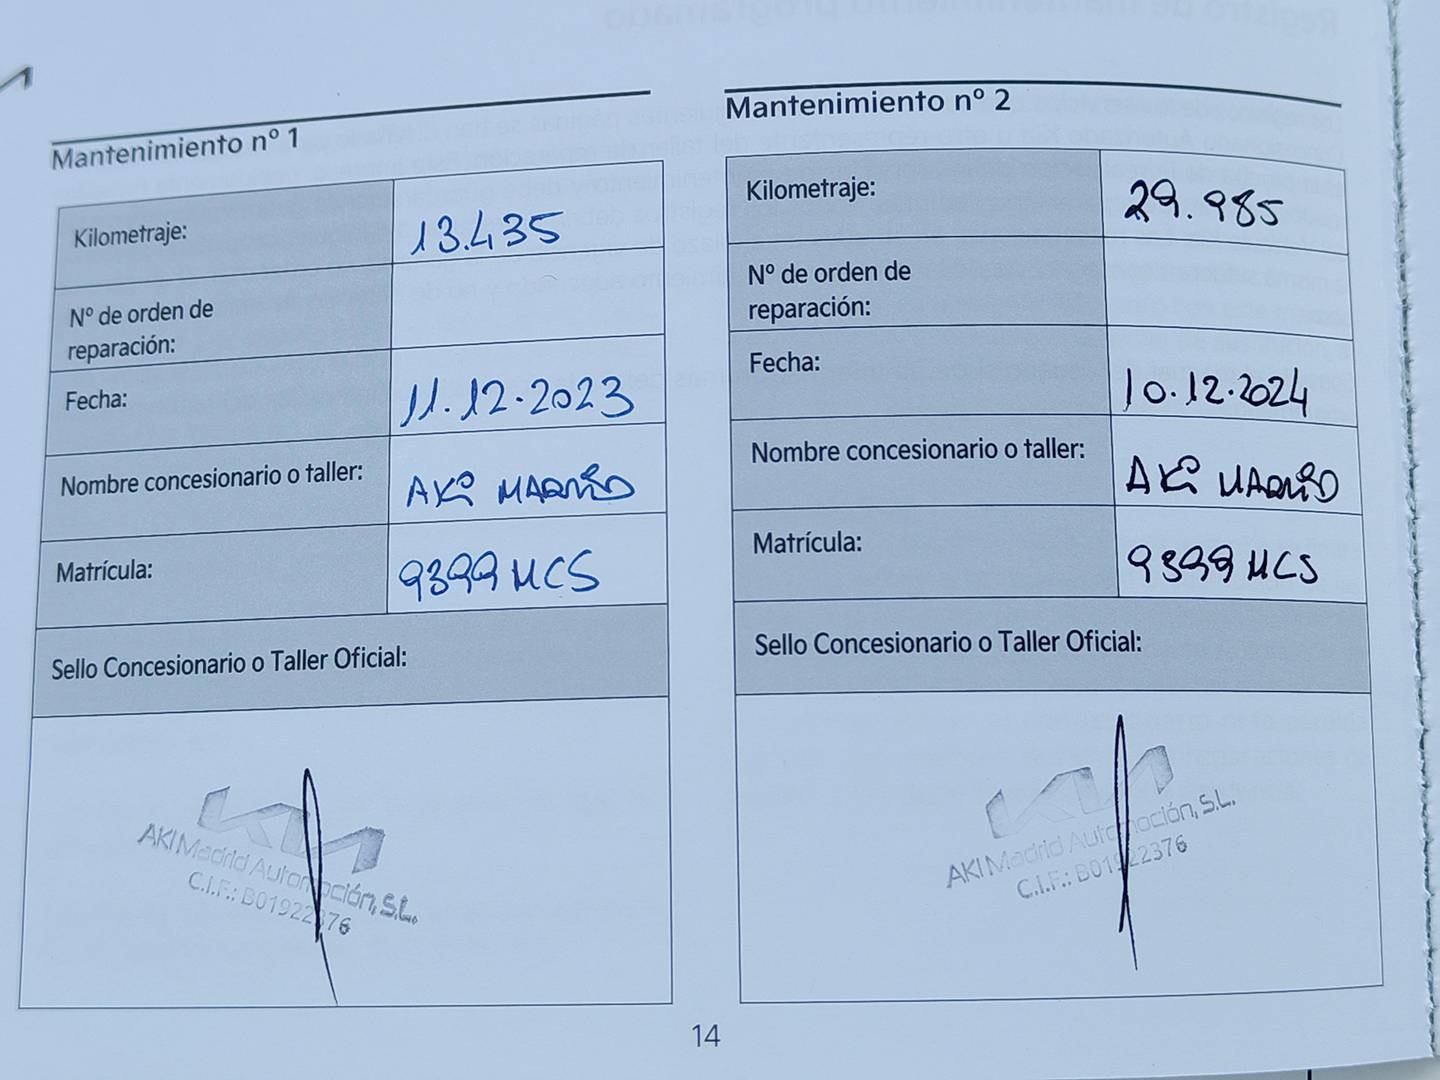 Mantenimiento nº 1
Kilometraje: 13.435
Nº de orden de
reparación:
Fecha: 11.12.2023
Nombre concesionario o taller: AKi MADRiD
Matrícula: 9399 MCS
Sello Concesionario o Taller Oficial:
KIA
AKI Madrid Automoción, S.L.
C.I.F.: B01922376
Mantenimiento nº 2
Kilometraje: 29.985
Nº de orden de
reparación:
Fecha: 10.12.2024
Nombre concesionario o taller: AKi MADRiD
Matrícula: 9399 MCS
Sello Concesionario o Taller Oficial:
KIA
AKI Madrid Automoción, S.L.
C.I.F.: B01922376
14